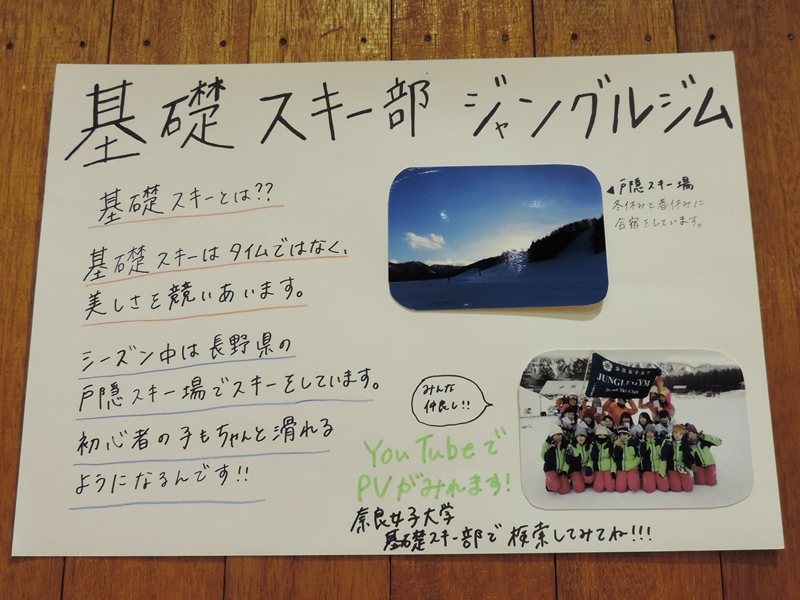 基礎 スキー部 ジャングルジム
基礎 スキーとは??
基礎 スキーは タイムではなく、
美しさを競いあいます。
シーズン中は 長野県の
戸隠 スキー場でスキーをしています。
初心者の子もちゃんと滑れる
ようになるんです!!
◀戸隠スキー場
冬休みと春休みに
合宿をしています。
みんな
仲良し!!
JUNGLE GYM
YouTubeで
PVがみれます!
奈良女子大学
基礎スキー部で 検索してみてね!!!